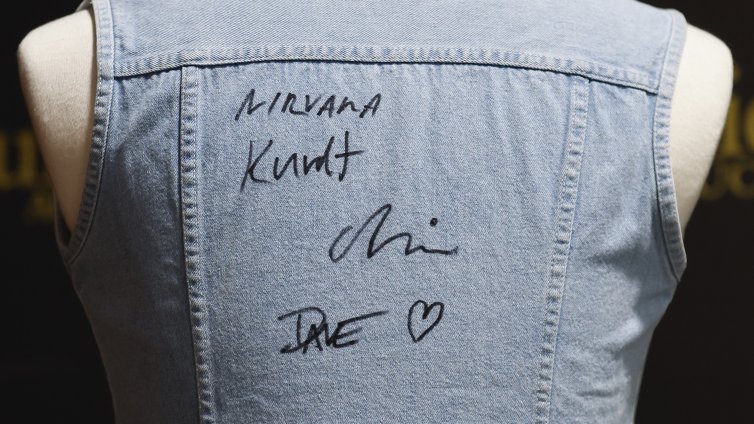 NIRVANA
Kurdt
DAVE